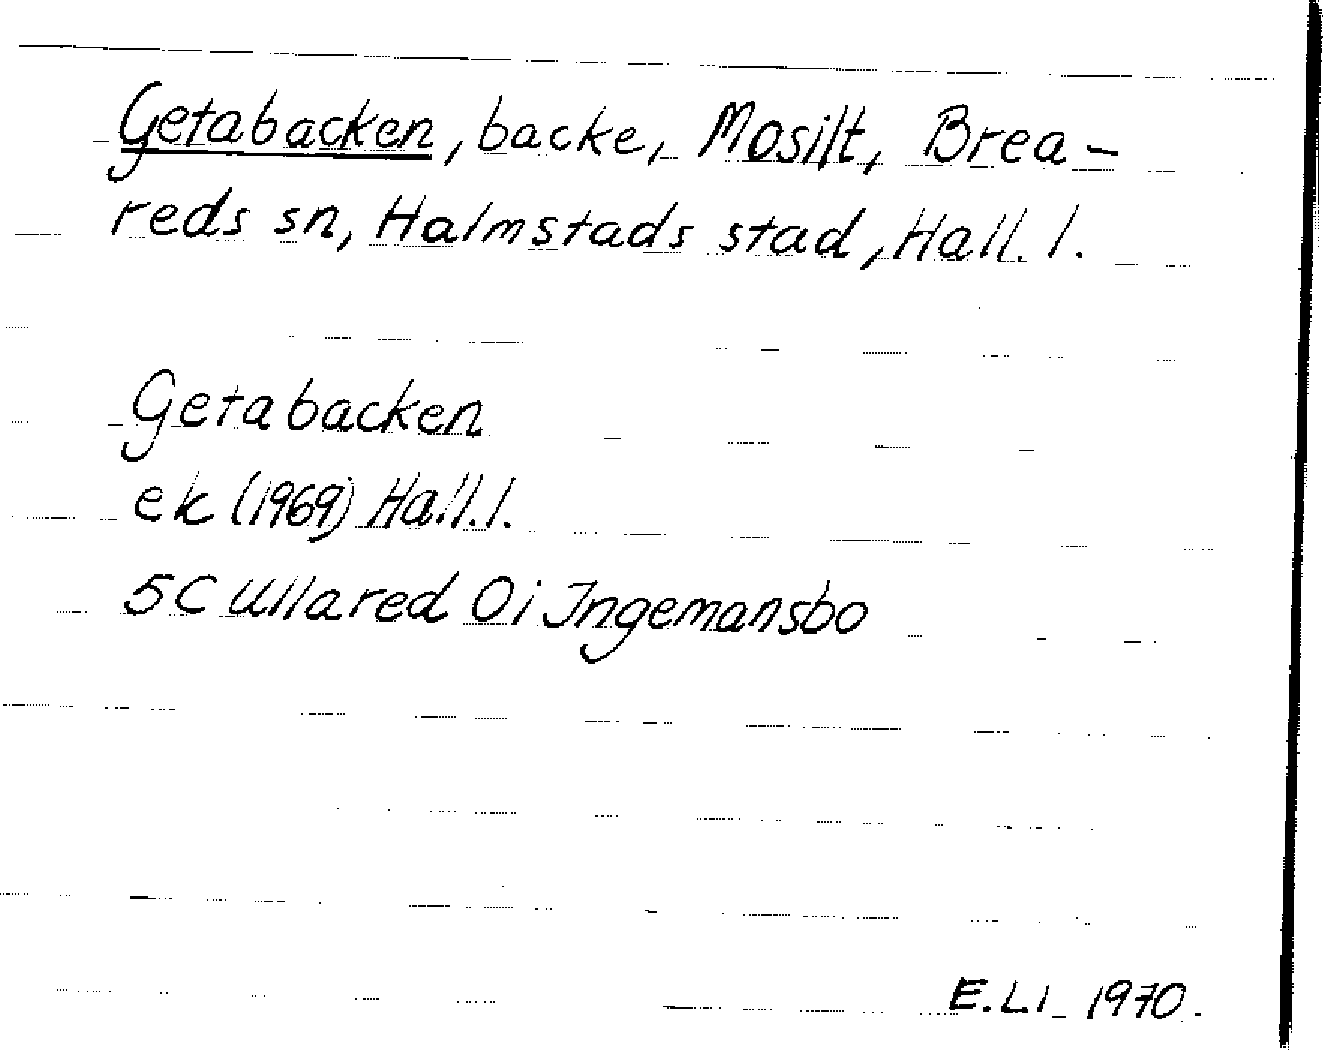 Getabacken, backe, Mosilt, Brea-
reds sn, Halmstads stad, Hall. l.
Getabacken
ek (1969) Hall.l.
5C Ullared 0i Ingemansbo
E.LI 1970.